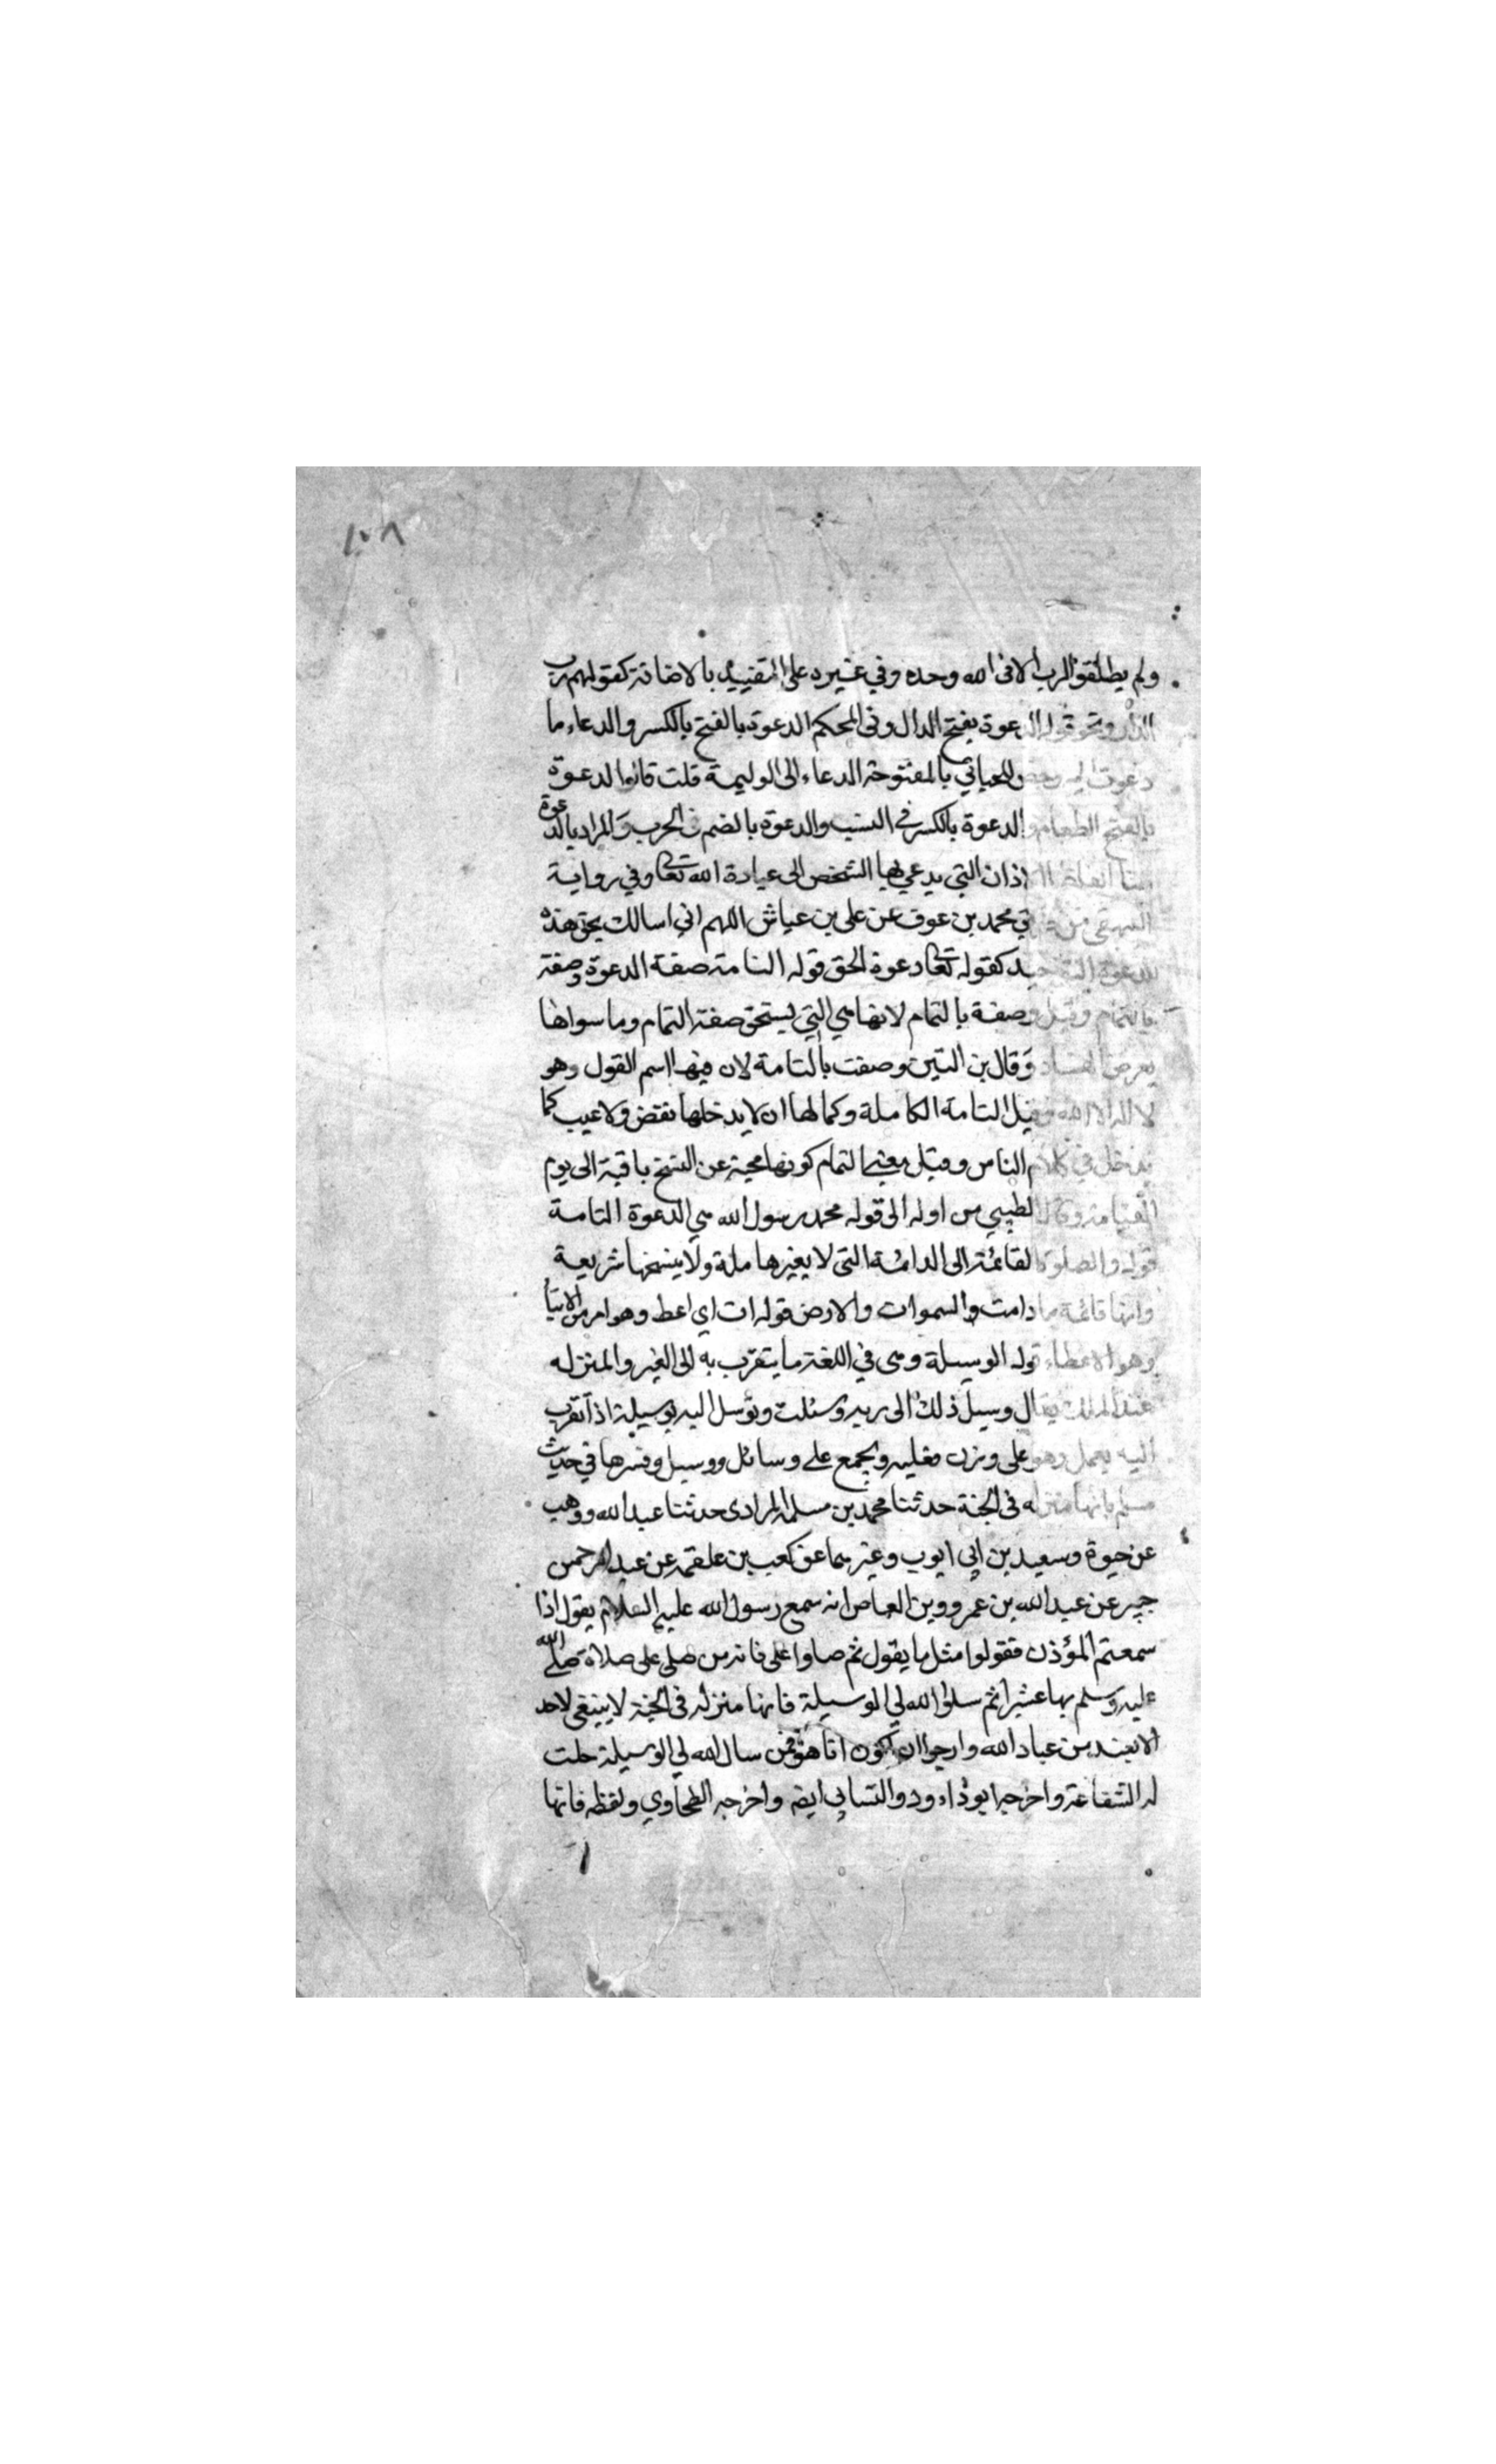 ١٠٨
ولم يطلقوا الرب الا فى الله وحده وفي غيره على التقييد بالاضافة كقولهم رب
الدار ونحو قوله الدعوة بفتح الدال وفى المحكم الدعوة بالفتح بالكسر والدعاء ما
دعوت اليه وخص اللحياني بالمفتوحة الدعاء الى الوليمة قلت قالوا الدعوة
بالفتح الطعام والدعوة بالكسر في النسب والدعوة بالضم في الحرب والمراد بالدعوة
هنا الفاظ الاذان التي يدعي بها الشخص الى عبادة الله تعالى وفي رواية
البيهقي من محمد بن عوف عن على بن عياش اللهم اني اسالك بحق هذه
الدعوة التوحيد كقوله تعالى دعوة الحق قوله التامة صفة الدعوة وصفة
بالتمام وقيل وصفة بالتمام لانها هي التي يستحق صفة التمام وما سواها
يعرض الفساد وقال بن التين وصفت بالتامة لان فيها اسم القول وهو
لا اله الا الله وقيل التامة الكاملة وكمالها ان لا يدخلها نقص ولا عيب كما
يدخل في كلام الناس وقيل معنى التمام كونها محية عن النسخ باقية الى يوم
القيامة وقال الطيبي من اوله الى قوله محمد رسول الله هي الدعوة التامة
قوله والصلوة القائمة الى الدائمة التى لا يغيرها ملة ولا ينسخها شريعة
وانها قائمة ما دامت والسموات والارض قوله ات اي اعط وهو امر من الايتاء
وهو الاعطاء قوله الوسيلة وهى في اللغة ما يتقرب به الى الغير والمنزله
عند الملك يقال وسيل ذلك الى ربه وسئلت وتوسل اليه بوسيلة اذا تقرب
اليه بعمل وهو على وزن فعليه ويجمع على وسائل ووسيل وفسرها في حديث
مسلم بانها منزله فى الجنة حدثنا محمد بن مسلمة المرادى حدثنا عبد الله ووهب
عن حيوة وسعيد بن ابي ايوب وغيرهما عن كعب بن علقمه عن عبد الرحمن
جبير عن عبد الله بن عمرو وبن العاص انه سمع رسول الله عليه السلام يقول اذا
سمعتم المؤذن فقولوا مثل ما يقول ثم صلوا على فانه من صلى على صلاة صلى الله
عليه وسلم بها عشرا ثم سلوا الله لي الوسيلة فانها منزله فى الجنة لا ينبغى لاحد
الا بعند من عباد الله وارجوا ان اكون انا هو فمن سال الله لي الوسيلة حلت
له الشفاعة واخرجه ابو داءود والنسايي ايضه واخرجه الطحاوي ولفظه فانها